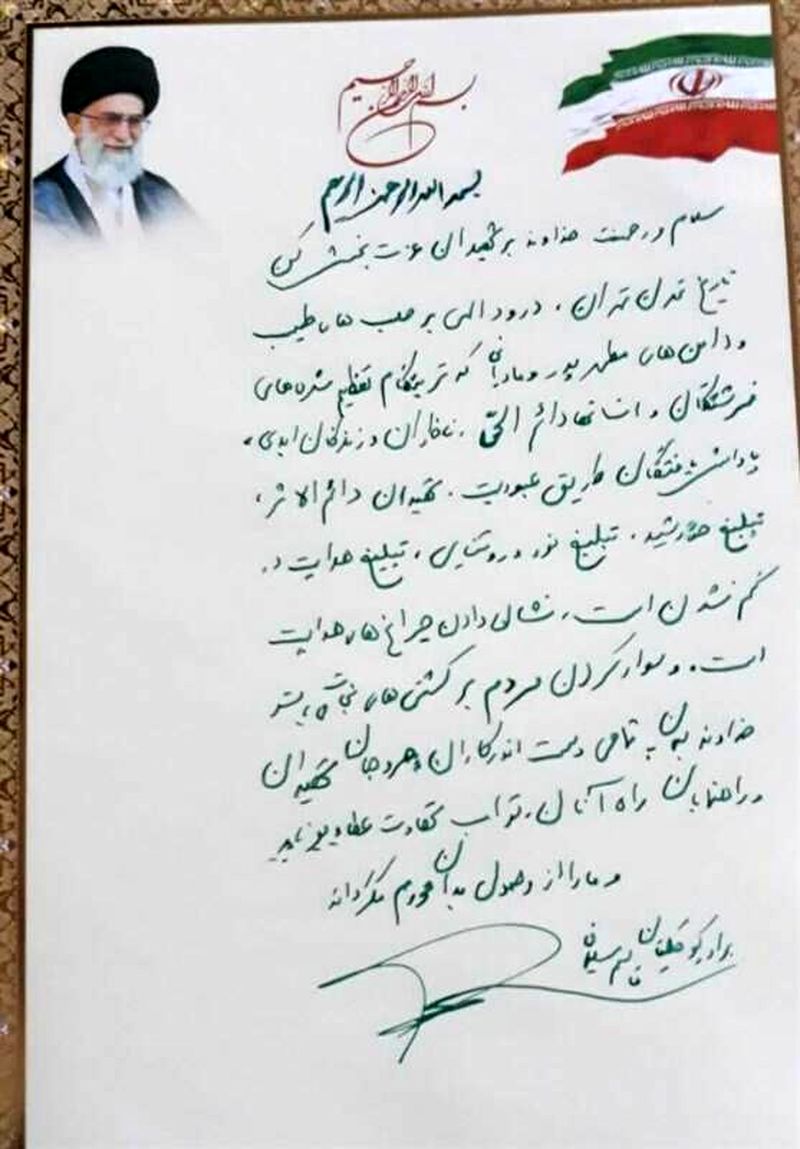 بسم الله الرحمن الرحیم
بسمه الله الرحمن الرحیم
سلام و رحمت خداوند بر شهیدان عزت بخش کهن
تاریخ تمدن تهران، درود الهی بر صلب های طیب
و دامن های مطهر پدر و مادرانی که تربیتگاه عظیم شده‌های
فرشتگان و انسانهای دائم الحیّ، نافاران و زندگان ابدی،
پاداش یافتگان طریق عبودیت. شهیدان دائم الاثر،
تبلیغ خورشید، تبلیغ نور و روشنایی، تبلیغ هدایت در
گم نشدن است، نشانی دادن چراغ های هدایت
است. و سوار کردن مردم بر کشتی های نجات بشر
خداوند به تمامی دست اندرکاران مروجان شهیدان
و راهنمایان راه آنان، ثواب شهادت عطا بفرماید
و ما را از وصول بدان محروم نگرداند
برادر کوچکیتان قاسم سلیمانی